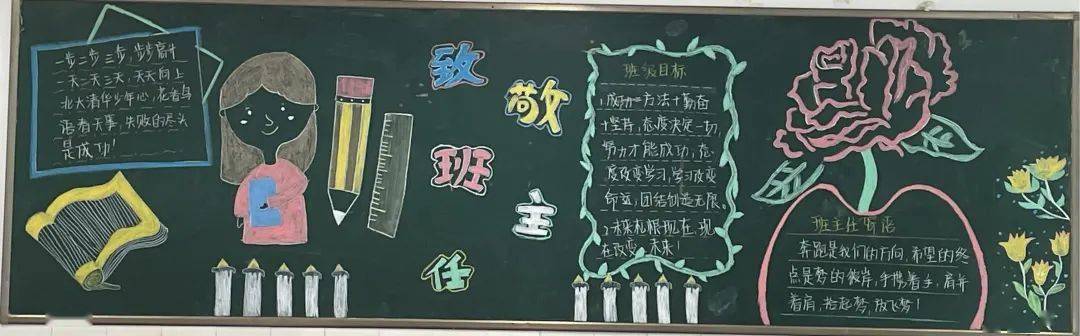 一步二步三步,步步高升
一天二天三天,天天向上
北大清华少年心,花香鸟
语看天事,失败的尽头
是成功!
致敬班主任
班级目标
1.成功=方法+勤奋
+坚持,态度决定一切,
努力才能成功,态
度改变学习,学习改变
命运,团结创造无限。
2.未来扎根现在,现
在改变未来!
班主任寄语
奔跑是我们的方向,希望的终
点是梦的彼岸,手携着手,肩并
着肩,拾起梦,放飞梦!